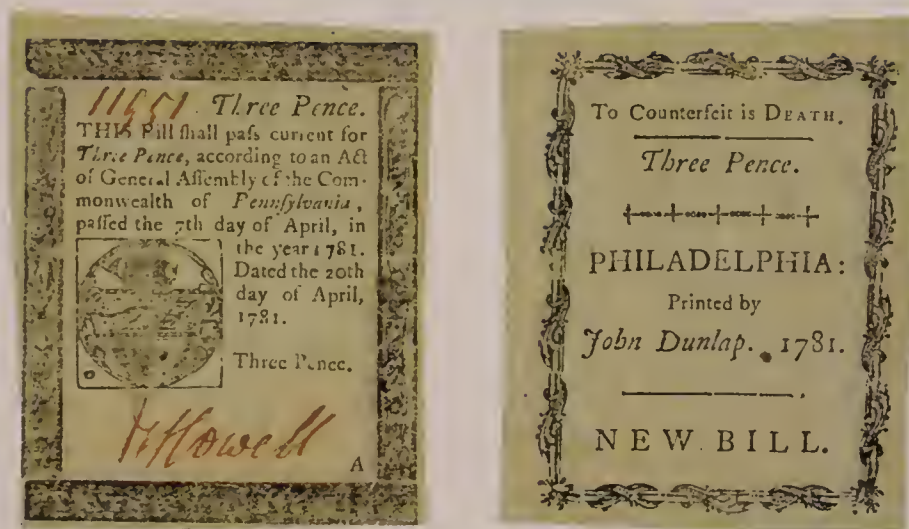 11951 Three Pence.
THIS Bill ſhall paſs current for
Three Pence, according to an Act
of General Aſſembly of the Com-
monwealth of Pennſylvania,
paſſed the 7th day of April, in
the year 1781.
Dated the 20th
day of April,
1781.
Three Pence.
Howell
A
To Counterfeit is DEATH.
Three Pence.
PHILADELPHIA:
Printed by
John Dunlap. 1781.
NEW BILL.